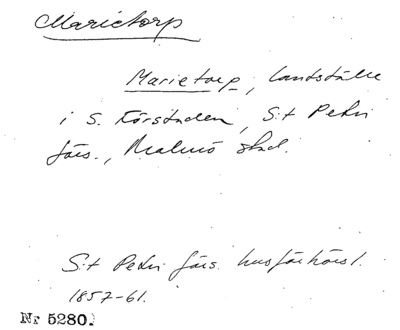 Marietorp
Marietorp, landställe
i S. Förstaden, S:t Petri
förs., Malmö stad.
S:t Petri förs. husförhörsl.
1857-61.
Nr 5280.